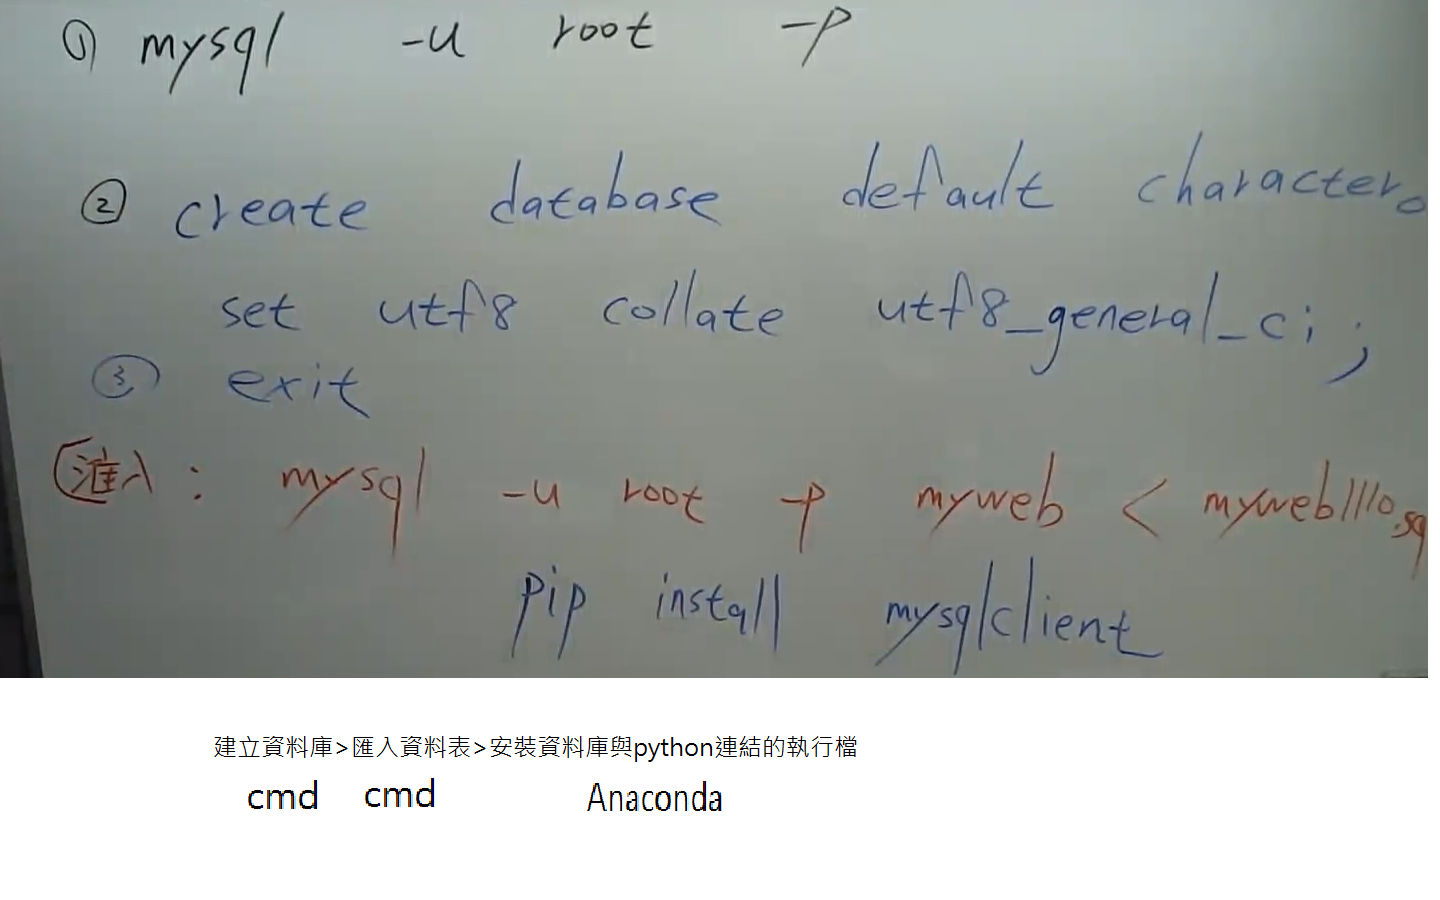 ① mysql -u root -p
② create database default character。
set utf8 collate utf8_general_ci ;
③ exit
匯入 : mysql -u root -p myweb < myweb1110.sq
pip install mysqlclient
建立資料庫>匯入資料表>安裝資料庫與python連結的執行檔
cmd cmd Anaconda